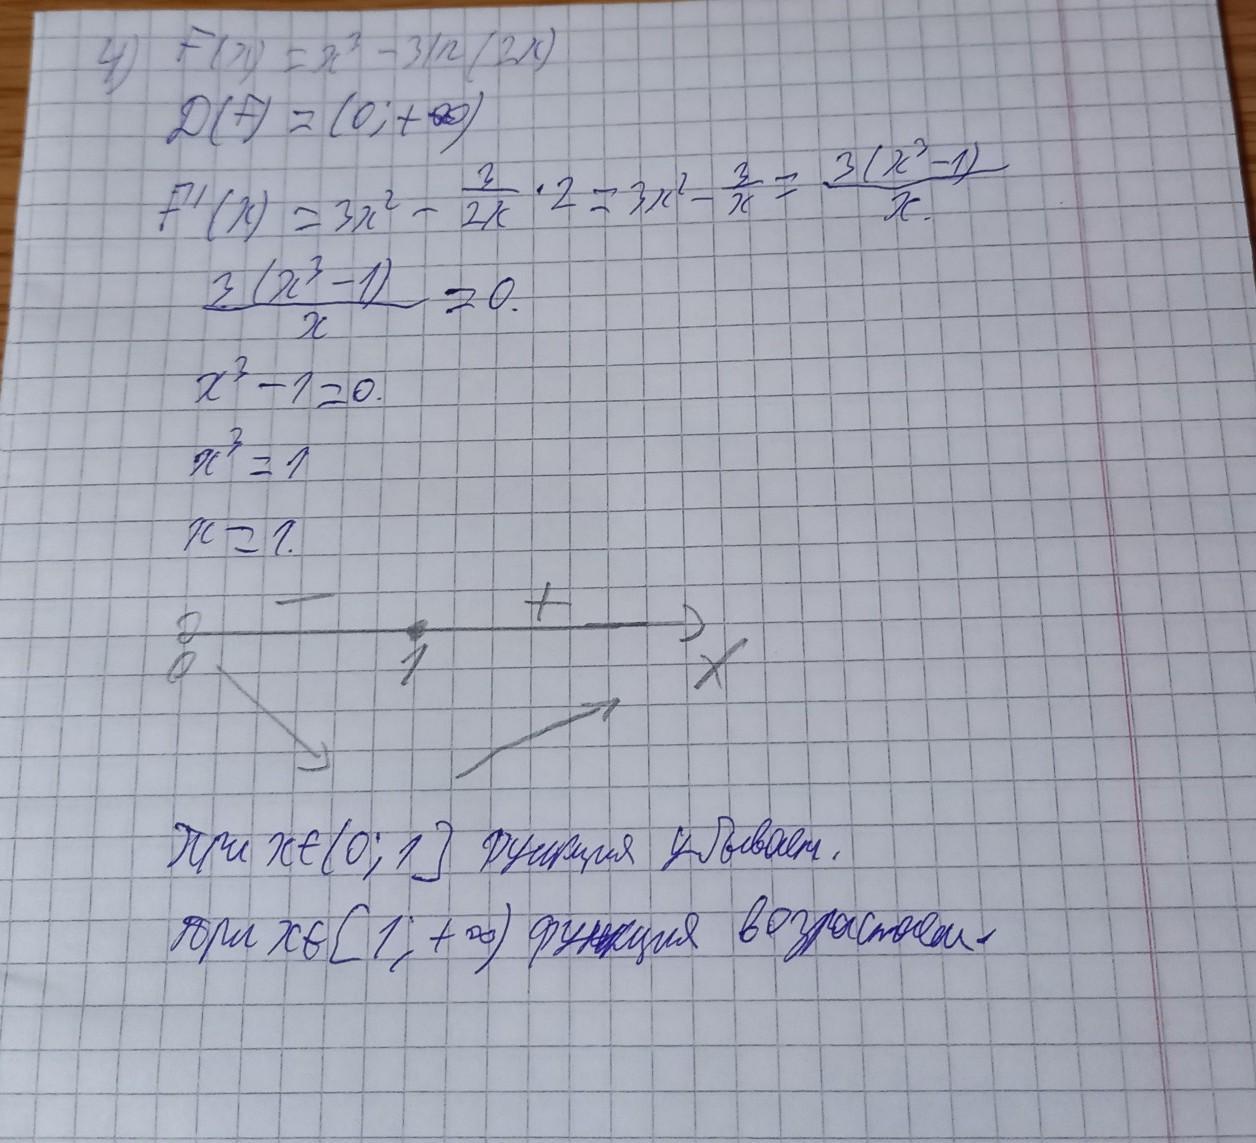 4) F(x) = x³ - 3ln(2x)
D(F) = (0; +∞)
F'(x) = 3x² - 3/2x · 2 = 3x² - 3/x = 3(x³-1)/x.
3(x³-1)/x = 0.
x³ - 1 = 0.
x³ = 1
x = 1.
- +
0 1 x
при x∈(0; 1] функция убывает.
при x∈[1; +∞) функция возрастает.